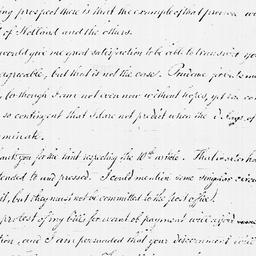 ing prospect there is that the example of that province wi
of Holland and the others.
would give me great satisfaction to be able to transmit yo
agreeable, but that is not the case. Private
tho' I am not even now without hopes, yet
so contingent that I dare not predict when the
minate.
thank you for the hint respecting the 10th article. That
tended to and pressed. I could mention some singular circu
it, but they must not be committed to the post office.
protest of my bills for want of payment will afford
tion, and I am persuaded that your discernment will